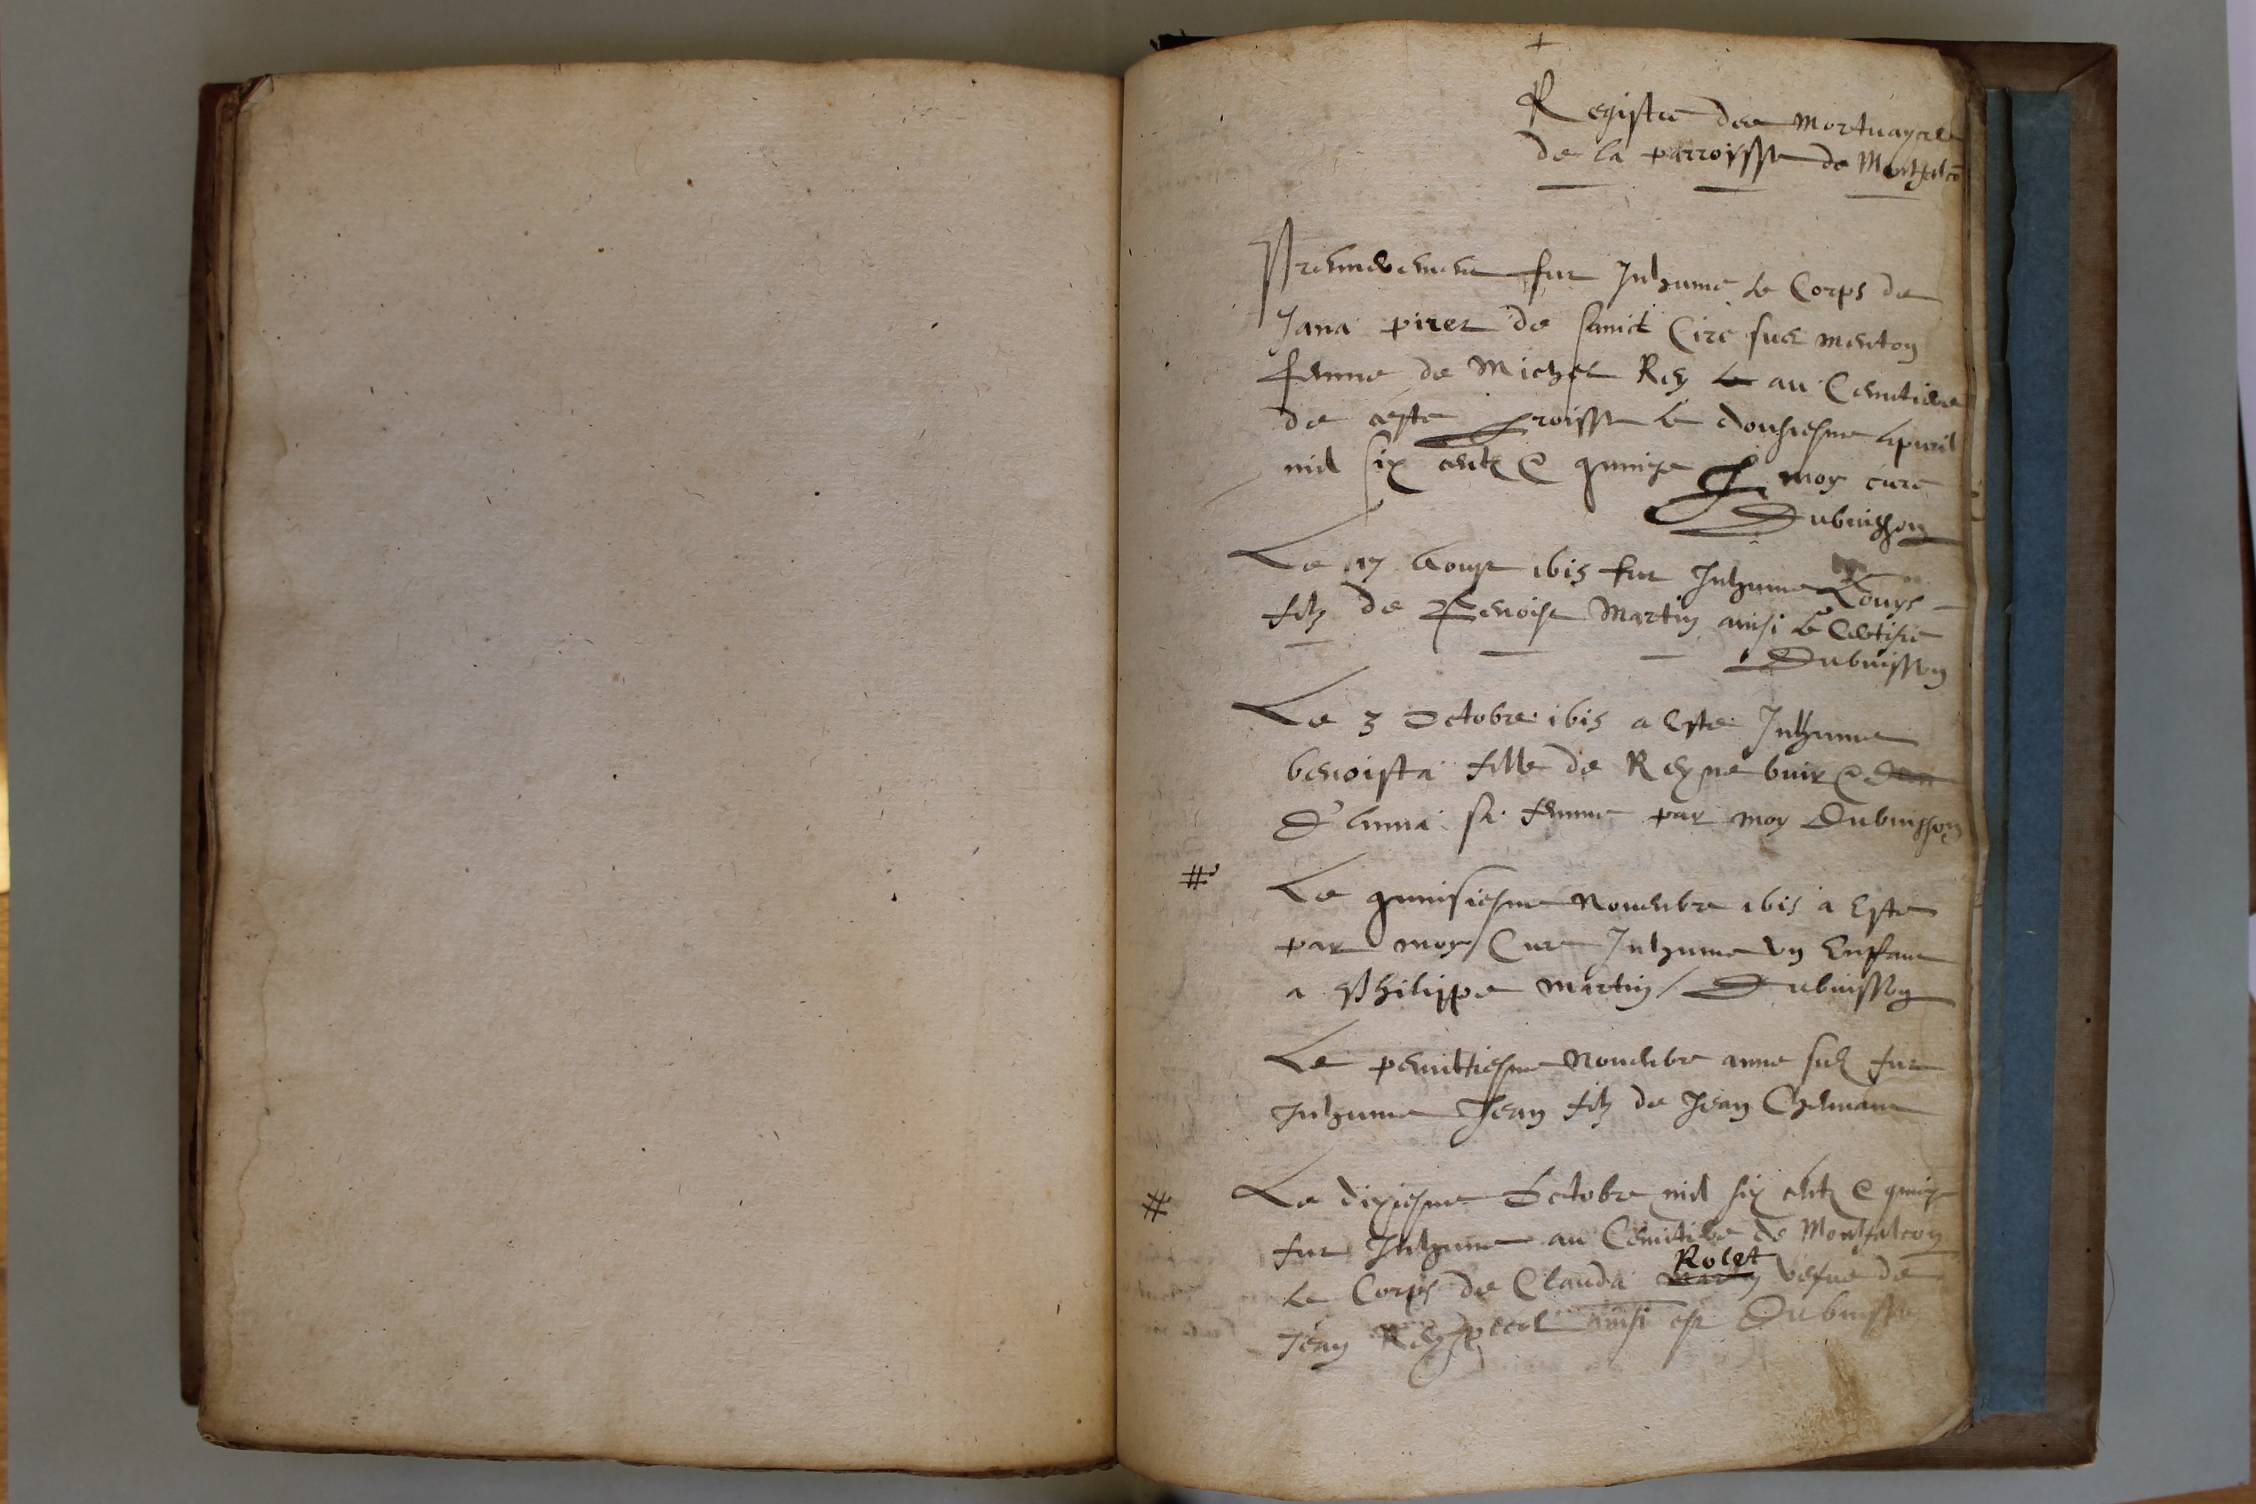 +
Registre des Mortuayres
de la parroysse de Montfalcō
Premierement fut Inhume le Corps de
Jana piret de sainct Cire sur menton
femme de Michel Rey le au Cemitiere
de ceste proisse le dousiesme Apvril
mil six centz & quinze P moy cure
Dubuisson
Le 17 Aoust 1615 fut Inhume Louys
filz de Benoist Martin ainsi le Certifie
Dubuisson
Le 3 Octobre 1615 a Este Inhume
benoista fille de Reyne buir &
d'Anna sa femme par moy Dubuisson
#
Le quinsiesme Novembre 1615 a Este
par moy Cure Inhume un Enffant
a Philippe Martin / Dubuisson
Le penultiesme Novembre anne susd fut
Inhume Jean filz de Jean
#
Le dixiesme Octobre mil six centz & quinze
fut Inhume au Cemitiere de Montfalcon
Rolet
le Corps de Clauda Martin vefue de
Jean Rey ainsi est Dubuisson